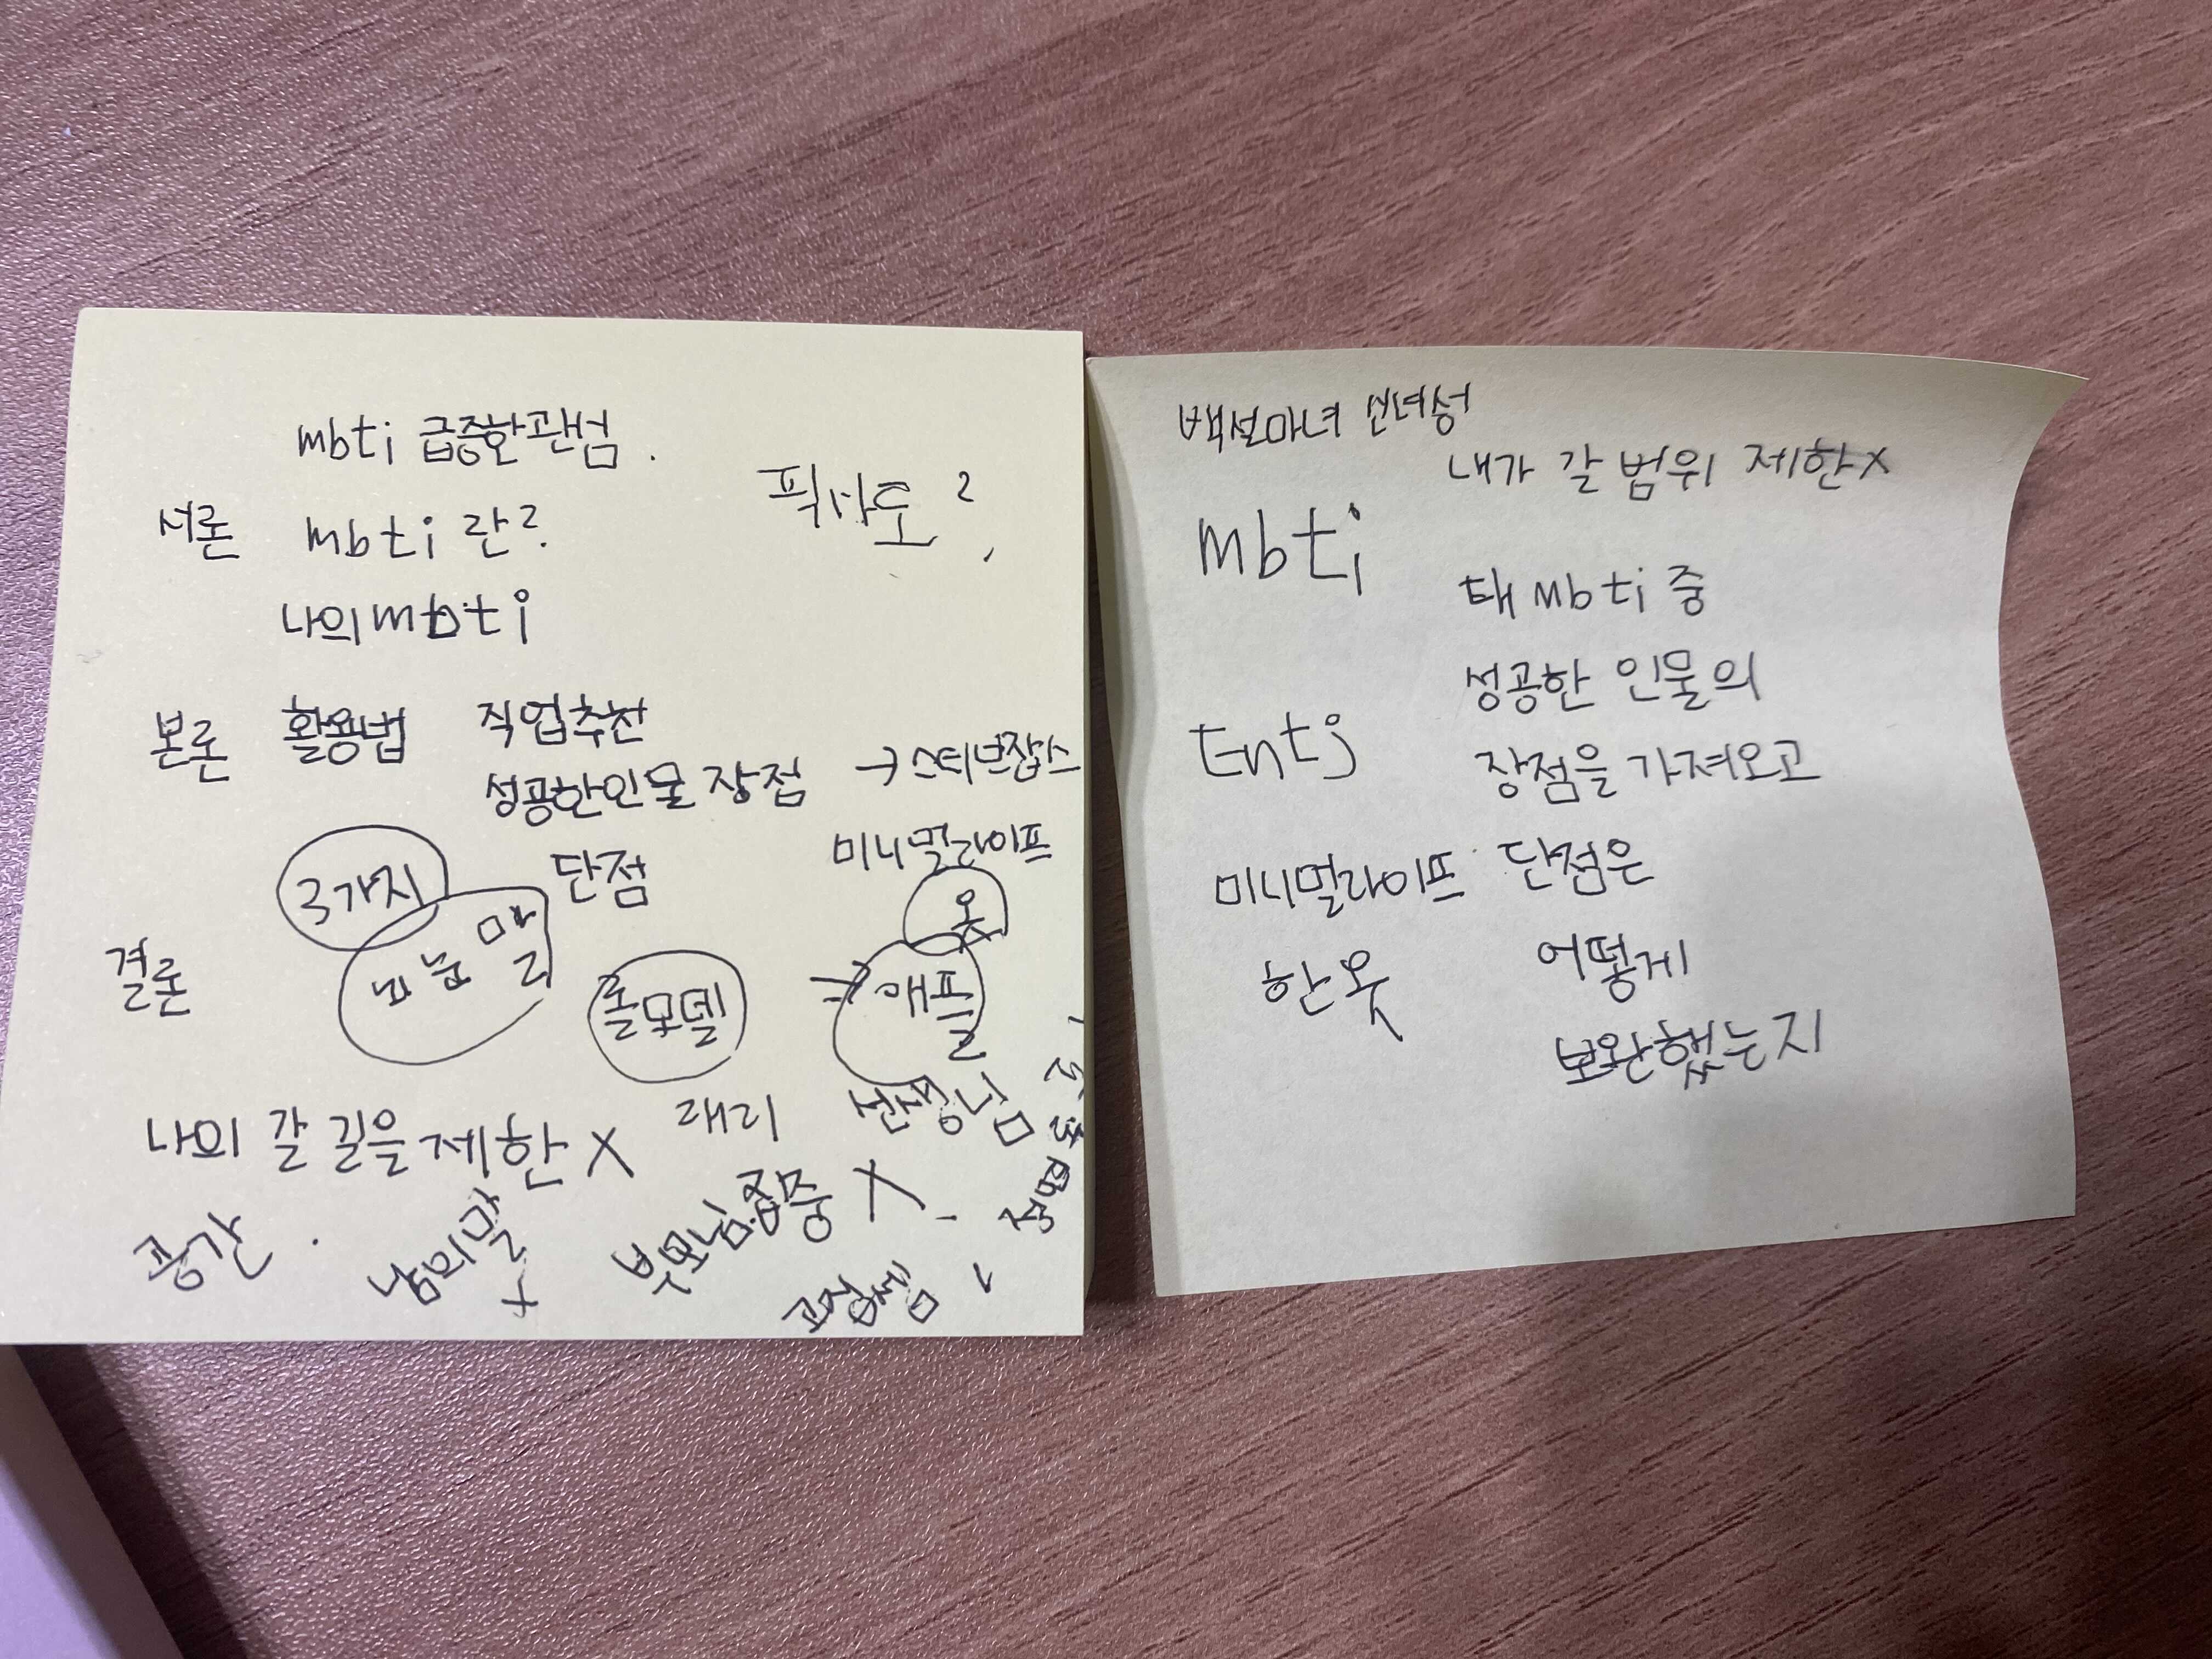 mbti 급증한관심.
픽사도?
서론 mbti 란?
나의 mbti
본론 활용법 직업추천
성공한인물 장점 → 스티브잡스
단점 미니멀라이프
3가지 옷
결론 롤모델 ⇒ 애플
나의 갈 길을 제한 X 래리 선생님
공간. 남의말 X 부모님.집중 X
백설마녀 신녀성
내가 갈 범위 제한X
mbti
태 mbti 중
성공한 인물의
Entj
장점을 가져오고
미니멀라이프 단점은
한옷 어떻게
보완했는지